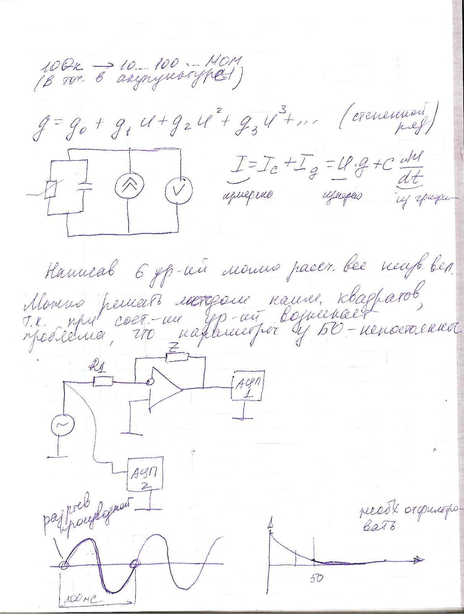 10 Ок → 10... 100 ... МОм
(в т.ч. в акупунктуре)
g = g₀ + g₁ u + g₂ u² + g₃ u³ + ... (степенной
ряд)
I = I_c + I_g = u · g + C du/dt
измерено измерено из график
Написав 6 ур-ий можно рассч. все неизв. вел.
Можно решать методом наим. квадратов,
т.к. при сост.-ии ур-ий возникает
проблема, что параметры у БО - непостоянны
R1
Z
АЦП
1
~
АЦП
2
разрыв
производной
необх отфильтро-
вать
100 мс
50